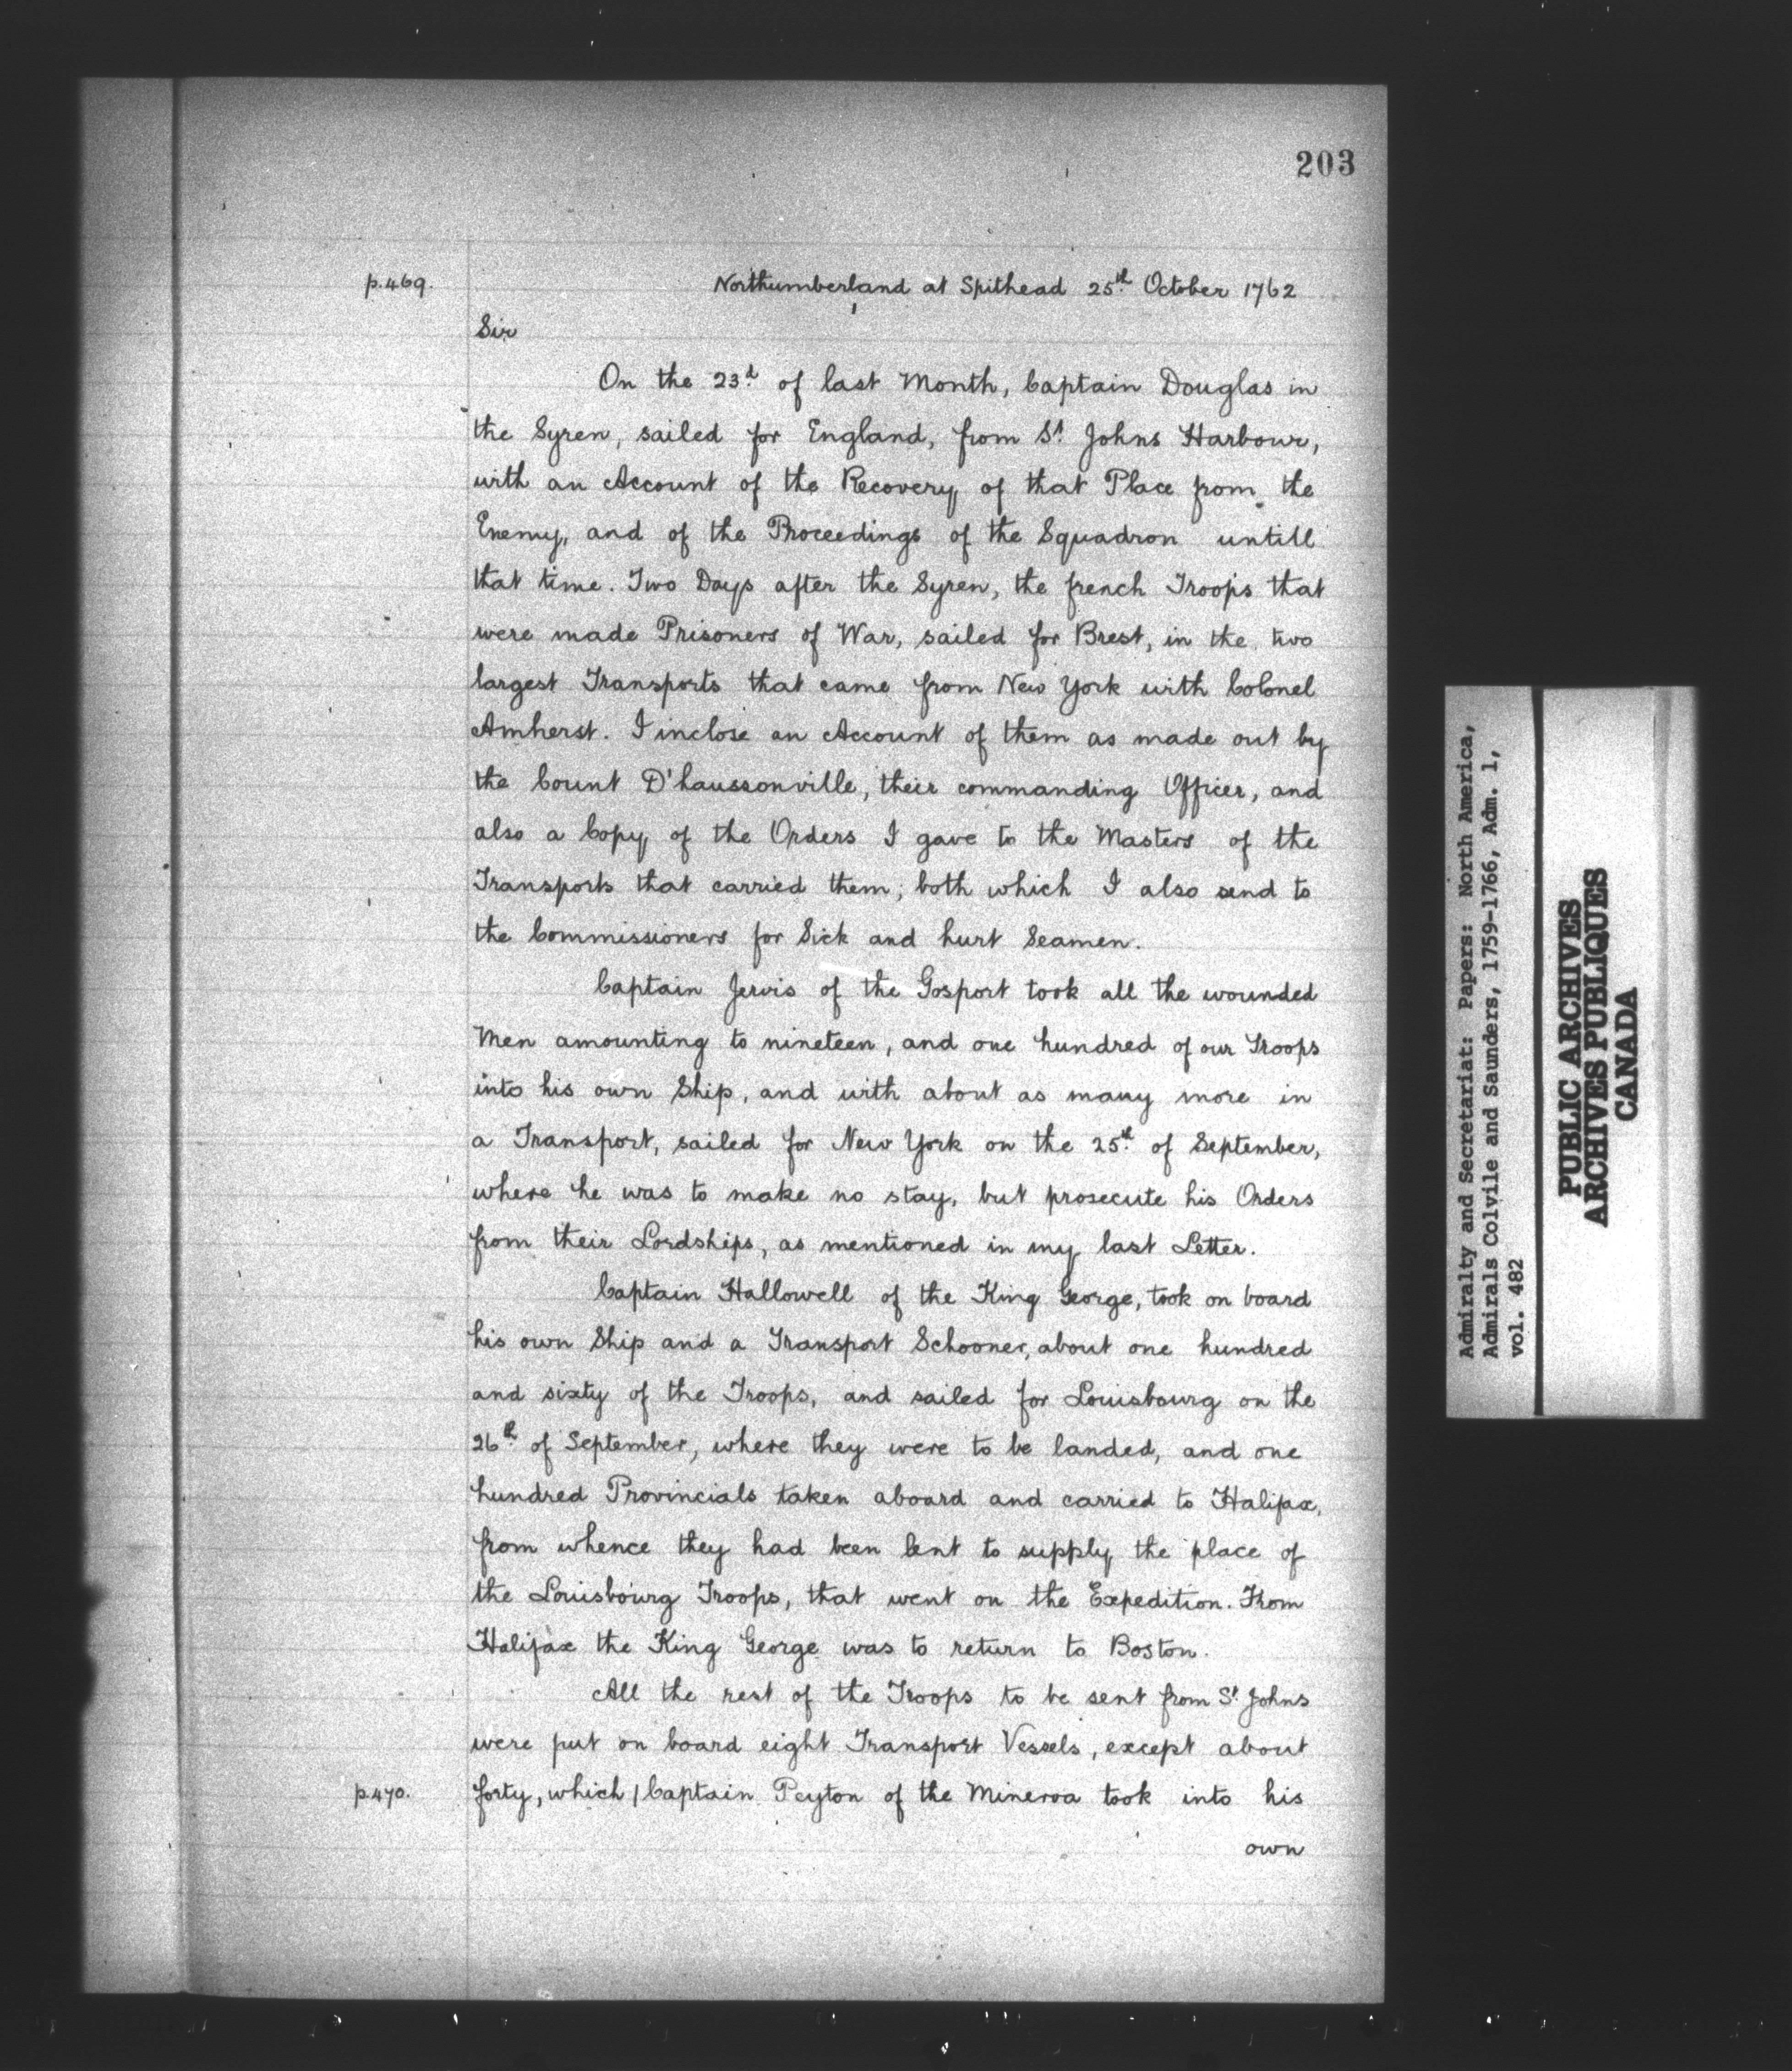 203
p.469.
Northumberland at Spithead 25th October 1762
Sir
On the 23d of last Month, Captain Douglas in
the Syren, sailed for England, from St Johns Harbour,
with an Account of the Recovery of that Place from the
Enemy, and of the Proceedings of the Squadron untill
that time. Two Days after the Syren, the french Troops that
were made Prisoners of War, sailed for Brest, in the two
largest Transports that came from New York with Colonel
Amherst. I inclose an Account of them as made out by
the Count D'haussonville, their commanding Officer, and
also a Copy of the Orders I gave to the Masters of the
Transports that carried them; both which I also send to
the Commissioners for Sick and hurt Seamen.
Captain Jervis of the Gosport took all the wounded
Men amounting to nineteen, and one hundred of our Troops
into his own Ship, and with about as many more in
a Transport, sailed for New York on the 25th of September,
where he was to make no stay, but prosecute his Orders
from their Lordships, as mentioned in my last Letter.
Captain Hallowell of the King George, took on board
his own Ship and a Transport Schooner, about one hundred
and sixty of the Troops, and sailed for Louisbourg on the
26th of September, where they were to be landed, and one
hundred Provincials taken aboard and carried to Halifax,
from whence they had been lent to supply the place of
the Louisbourg Troops, that went on the Expedition. From
Halifax the King George was to return to Boston.
All the rest of the Troops to be sent from St Johns
were put on board eight Transport Vessels, except about
p.470.
forty, which / Captain Peyton of the Minerva took into his
own
Admiralty and Secretariat: Papers: North America,
Admirals Colvile and Saunders, 1759-1766, Adm. 1,
vol. 482
PUBLIC ARCHIVES
ARCHIVES PUBLIQUES
CANADA